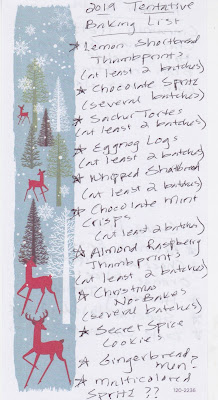 2019 Tentative
Baking List
* Lemon Shortbread
Thumbprints
(at least 2 batches)
* Chocolate Spritz
(several batches)
* Sachur Tortes
(at least 2 batches)
* Eggnog Logs
(at least 2 batches)
* Whipped Shortbread
(at least 2 batches)
* Chocolate Mint
Crisps
(at least 2 batches)
* Almond Raspberry
Thumbprints
(at least 2 batches)
* Christmas
No-Bakes
(several batches)
* Secret Spice
Cookies
* Gingerbread
men?
* Multicolored
Spritz ??
120-3236